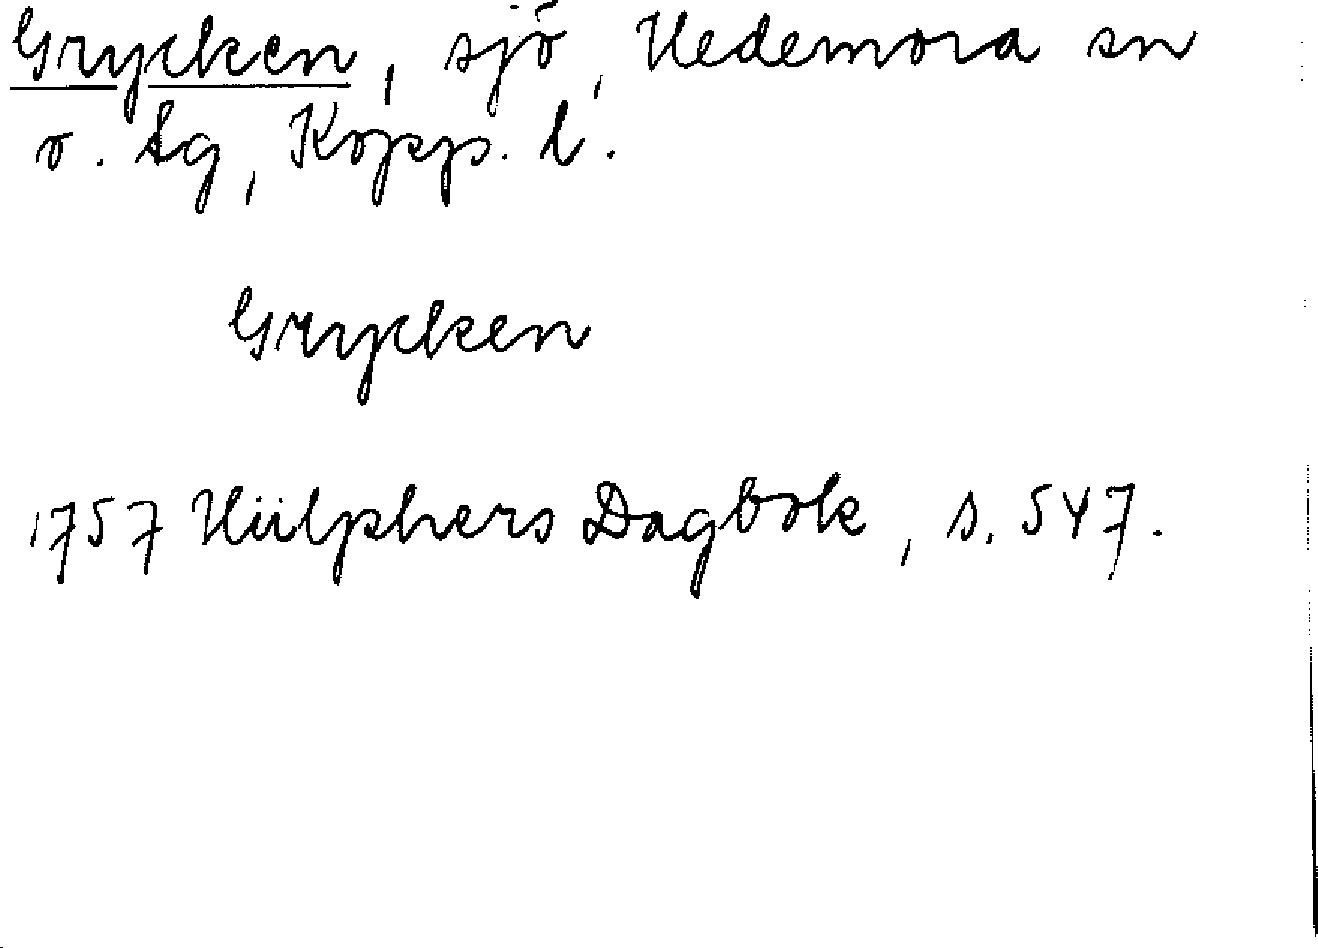 Grycken, sjö, Hedemora sn
o. tg, Kopp. l.
Grycken
1757 Hülphers Dagbok, s. 547.